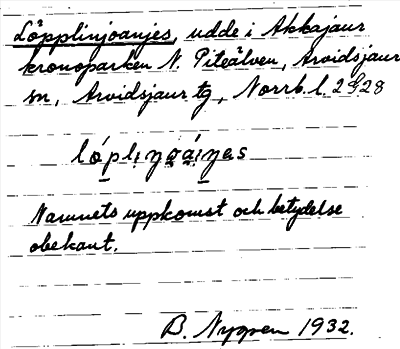 Löpplinjoanjes, udde i Akkajaur
kronoparken N. Piteälven, Arvidsjaur
sn, Arvidsjaur tg, Norrb. l. 2928
Namnets uppkomst och betydelse
obekant.
B. Nygren 1932.